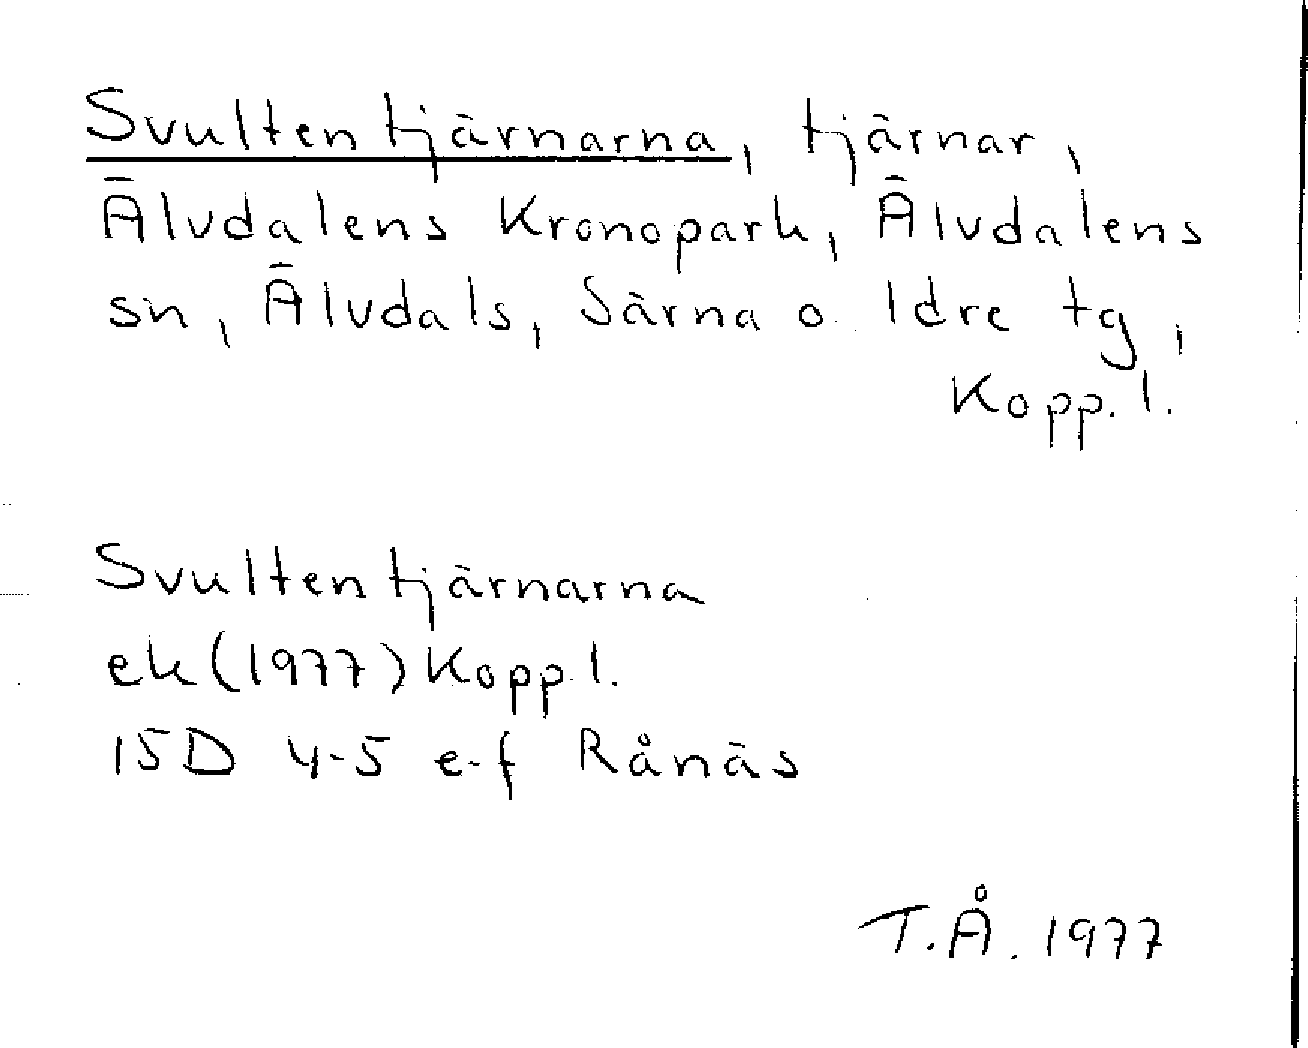 Svultentjärnarna, tjärnar,
Älvdalens Kronopark, Älvdalens
sn, Älvdals, Särna o. Idre tg,
Kopp. l.
Svultentjärnarna
ek (1977) Kopp. l.
15D 4-5 e-f Rånäs
T.Å. 1977